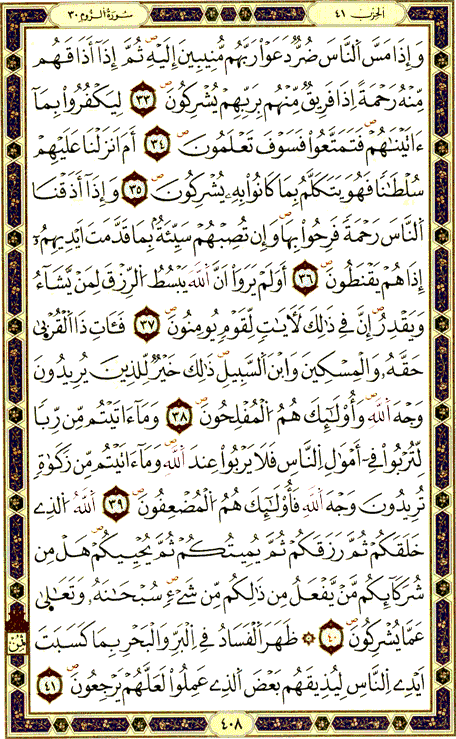 سُورَةُ الرُّومِ ٣٠ الحِزْبُ ٤١
وَإِذَا مَسَّ اَلنَّاسَ ضُرٌّ دَعَوْا۟ رَبَّهُم مُّنِيبِينَ إِلَيْهِ ثُمَّ إِذَآ أَذَاقَهُم
مِّنْهُ رَحْمَةً إِذَا فَرِيقٌ مِّنْهُم بِرَبِّهِمْ يُشْرِكُونَ ٣٣ لِيَكْفُرُوا۟ بِمَآ
ءَاتَيْنَٰهُمْ فَتَمَتَّعُوا۟ فَسَوْفَ تَعْلَمُونَ ٣٤ أَمْ أَنزَلْنَا عَلَيْهِمْ
سُلْطَٰنًا فَهُوَ يَتَكَلَّمُ بِمَا كَانُوا۟ بِهِۦ يُشْرِكُونَ ٣٥ وَإِذَآ أَذَقْنَا
اَلنَّاسَ رَحْمَةً فَرِحُوا۟ بِهَا وَإِن تُصِبْهُمْ سَيِّئَةٌۢ بِمَا قَدَّمَتَ اَيْدِيهِمُۥٓ
إِذَا هُمْ يَقْنَطُونَ ٣٦ أَوَلَمْ يَرَوَا۟ اَنَّ اَللَّهَ يَبْسُطُ اُلرِّزْقَ لِمَنْ يَّشَآءُ
وَيَقْدِرُ إِنَّ فِے ذَٰلِكَ لَأٓيَٰتٍ لِّقَوْمٍ يُومِنُونَ ٣٧ فَـَٔاتِ ذَا اَلْقُرْبَىٰ
حَقَّهُۥ وَالْمِسْكِينَ وَابْنَ اَلسَّبِيلِ ذَٰلِكَ خَيْرٌ لِّلذِينَ يُرِيدُونَ
وَجْهَ اَللَّهِ وَأُو۟لَٰٓئِكَ هُمُ اُلْمُفْلِحُونَ ٣٨ وَمَآ ءَاتَيْتُم مِّن رِّبًا
لِّتُرْبُوا۟ فِےٓ أَمْوَٰلِ اِلنَّاسِ فَلَا يَرْبُوا۟ عِندَ اَللَّهِ وَمَآ ءَاتَيْتُم مِّن زَكَوٰةٍ
تُرِيدُونَ وَجْهَ اَللَّهِ فَأُو۟لَٰٓئِكَ هُمُ اُلْمُضْعِفُونَ ٣٩ اَللَّهُ اُلذِے
خَلَقَكُمْ ثُمَّ رَزَقَكُمْ ثُمَّ يُمِيتُكُمْ ثُمَّ يُحْيِيكُمْ هَلْ مِن
شُرَكَآئِكُم مَّنْ يَّفْعَلُ مِن ذَٰلِكُم مِّن شَےْءٍ سُبْحَٰنَهُۥ وَتَعَٰلَىٰ
عَمَّا يُشْرِكُونَ ٤٠ ۞ ظَهَرَ اَلْفَسَادُ فِے اِلْبَرِّ وَالْبَحْرِ بِمَا كَسَبَتَ
اَيْدِے اِلنَّاسِ لِيُذِيقَهُم بَعْضَ اَلذِے عَمِلُوا۟ لَعَلَّهُمْ يَرْجِعُونَ ٤١
ثُمُن
٤٠٨